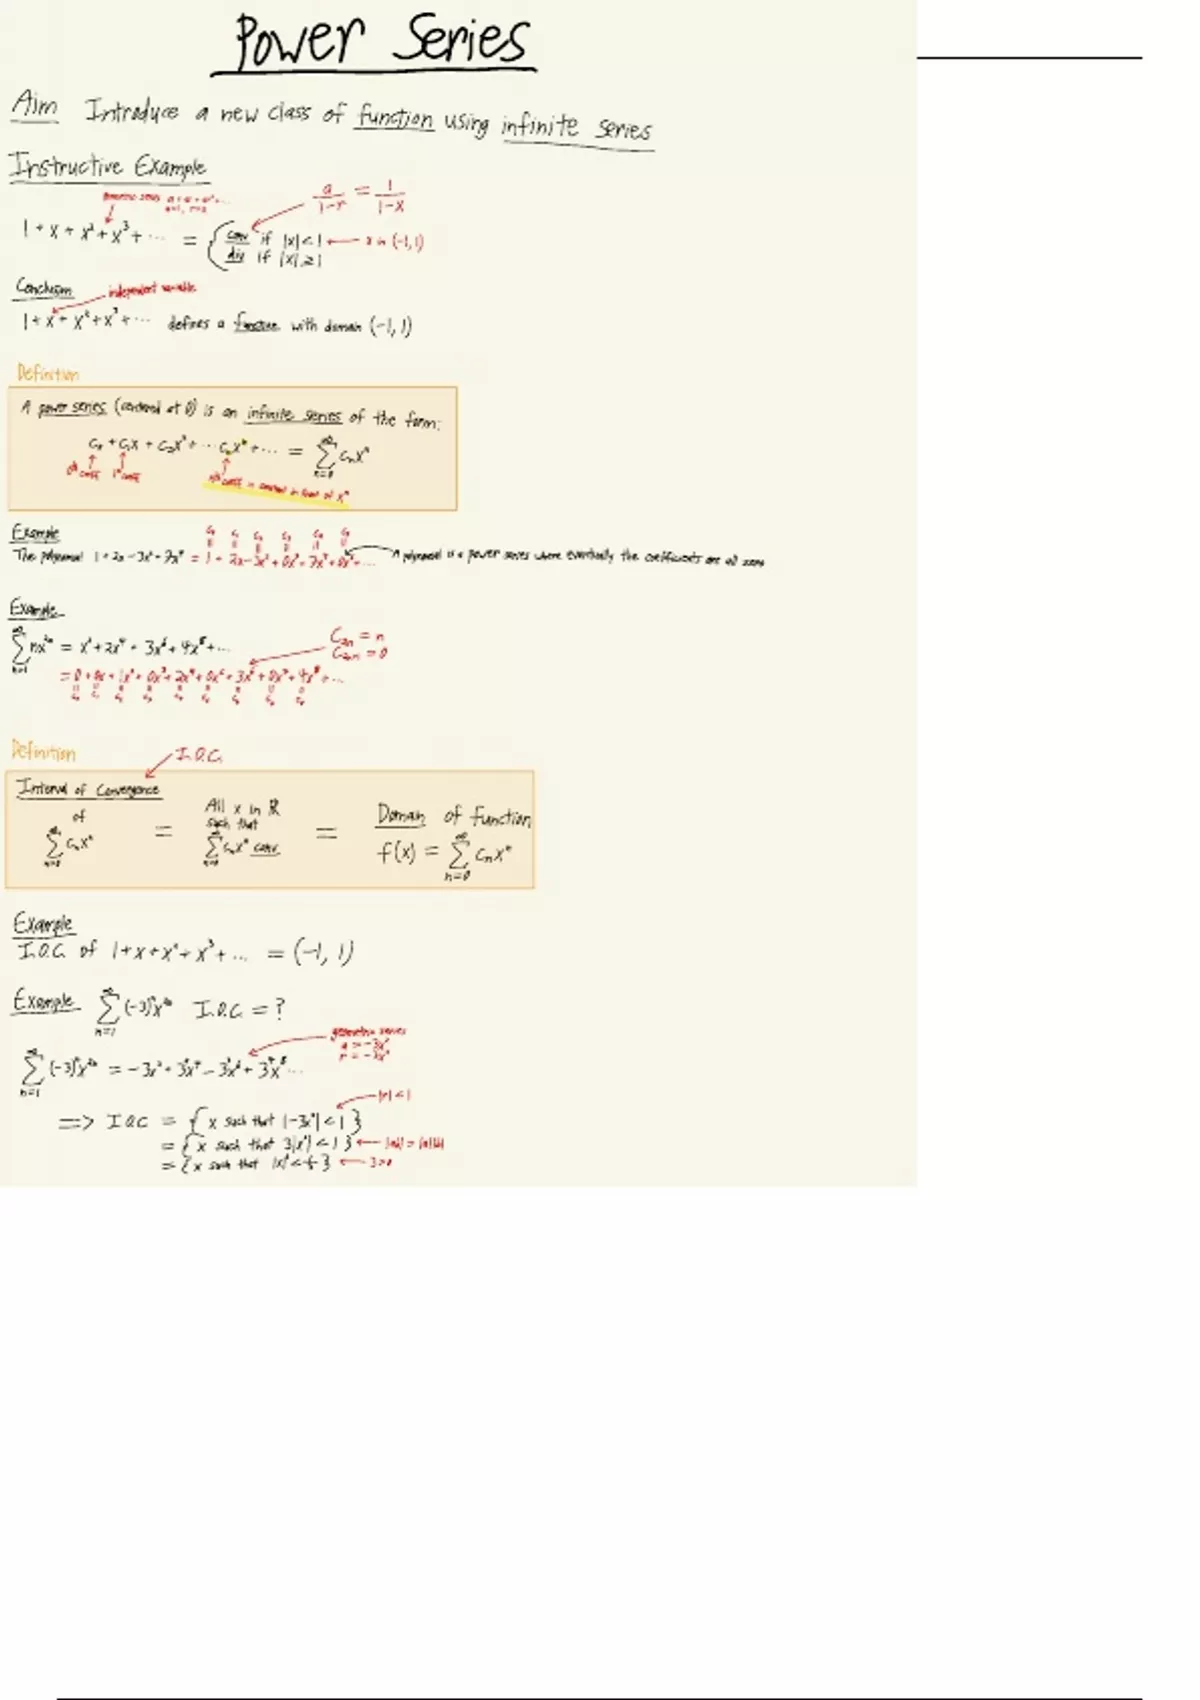 Power Series
Aim Introduce a new class of function using infinite series
Instructive Example
geometric series a + ar + ar² + ...
a=1, r=x
a/(1-r) = 1/(1-x)
1 + x + x² + x³ + ... = { conv if |x| < 1 ← x in (-1, 1)
div if |x| ≥ 1
Conclusion
independent variable
1 + x + x² + x³ + ... defines a function with domain (-1, 1)
Definition
A power series (centered at 0) is an infinite series of the form:
c₀ + c₁x + c₂x² + ... cₙxⁿ + ... = ∑ₙ₌₀^∞ cₙxⁿ
0th coeff 1st coeff nth coeff is constant in front of xⁿ
Example
The polynomial 1 + 2x - 3x² + 7x⁴ = 1 + 2x - 3x² + 0x³ + 7x⁴ + 0x⁵ + ... A polynomial is a power series where eventually the coefficients are all zero
Example
∑ₙ₌₁^∞ nx²ⁿ = x² + 2x⁴ + 3x⁶ + 4x⁸ + ...
C₂ₙ = n
C₂ₙ₊₁ = 0
Definition
I.O.C.
Interval of Convergence of ∑ₙ₌₀^∞ cₙxⁿ = All x in ℝ such that ∑ₙ₌₀^∞ cₙxⁿ conv = Domain of function f(x) = ∑ₙ₌₀^∞ cₙxⁿ
Example
I.O.C. of 1 + x + x² + x³ + ... = (-1, 1)
Example ∑ₙ₌₁^∞ (-3)ⁿx²ⁿ I.O.C = ?
geometric series
a = -3x²
r = -3x²
∑ₙ₌₁^∞ (-3)ⁿx²ⁿ = -3x² + 3²x⁴ - 3³x⁶ + 3⁴x⁸ ...
|r| < 1
=> I.O.C = { x such that |-3x²| < 1 }
= { x such that 3|x²| < 1 } ← |ab| = |a||b|
= { x such that |x|² < 1/3 } ← 3>0